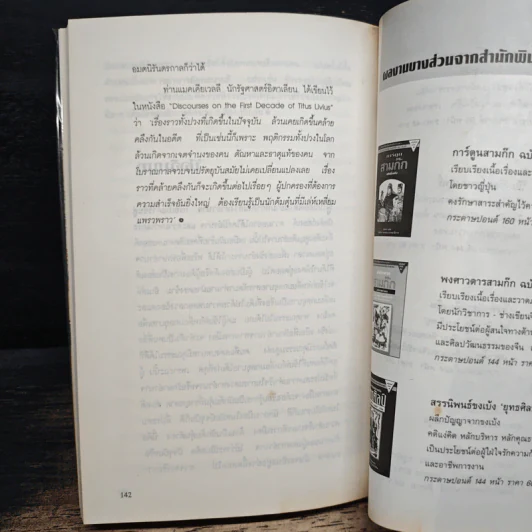 อมตนิรันตรกาลก็ว่าได้
ท่านแมคเคียเวลลี นักรัฐศาสตร์อิตาเลียน ได้เขียนไว้
ในหนังสือ "Discourses on the First Decade of Titus Livius"
ว่า เรื่องราวทั้งปวงที่เกิดขึ้นในปัจจุบัน ล้วนเคยเกิดขึ้นคล้าย
คลึงกันในอดีต ที่เป็นเช่นนี้ก็เพราะ พฤติกรรมทั้งปวงในโลก
ล้วนเกิดจากเจตจำนงของคน ตัณหาและธาตุแท้ของคน จาก
โบราณกาลจวบจนปัจจุบันสมัยไม่เคยเปลี่ยนแปลงเลย เรื่อง
ราวที่คล้ายคลึงกันก็จะเกิดขึ้นต่อไปเรื่อยๆ ผู้ปกครองที่ต้องการ
ความสำเร็จอันยิ่งใหญ่ ต้องเรียนรู้เป็นนักต้มตุ๋นที่มีเล่ห์เหลี่ยม
แพรวพราว
142
ผลงานบางส่วนจากสำนักพิม
การ์ตูนสามก๊ก ฉบั
เรียบเรียงเนื้อเรื่องและ
โดยชาวญี่ปุ่น
คงรักษาสาระสำคัญไว้
กระดาษปอนด์ 160 หน้า
พงศาวดารสามก๊ก ฉบั
เรียบเรียงเนื้อเรื่องและวาด
โดยนักวิชาการ - ช่างเขียน
มีประโยชน์ต่อผู้สนใจทางด้าน
และศิลปวัฒนธรรมของจีน
กระดาษปอนด์ 144 หน้า ราคา
สรรนิพนธ์ขงเบ้ง 'ยุทธศิล
ผลึกปัญญาจากขงเบ้ง
คติแง่คิด หลักบริหาร หลักคุณธร
เป็นประโยชน์ต่อผู้ใฝ่ใจรักความก้
และอาชีพการงาน
กระดาษปอนด์ 144 หน้า ราคา 6